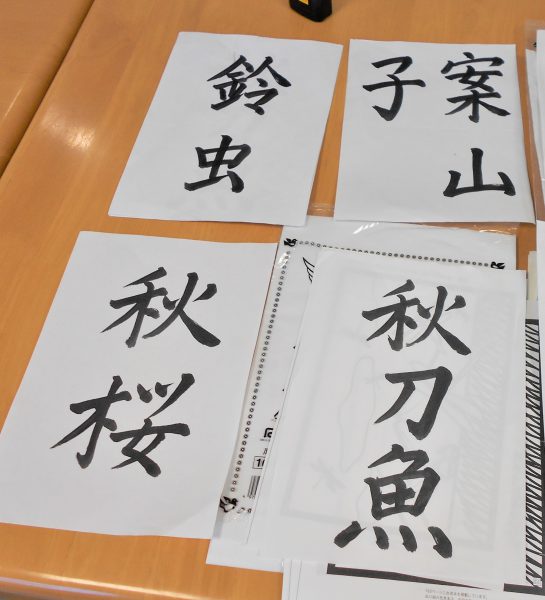 鈴虫
案山
子
秋桜
秋刀魚